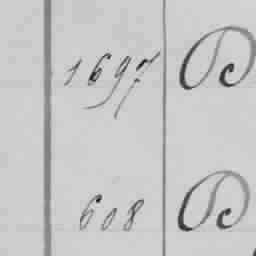 1697 B
608 B